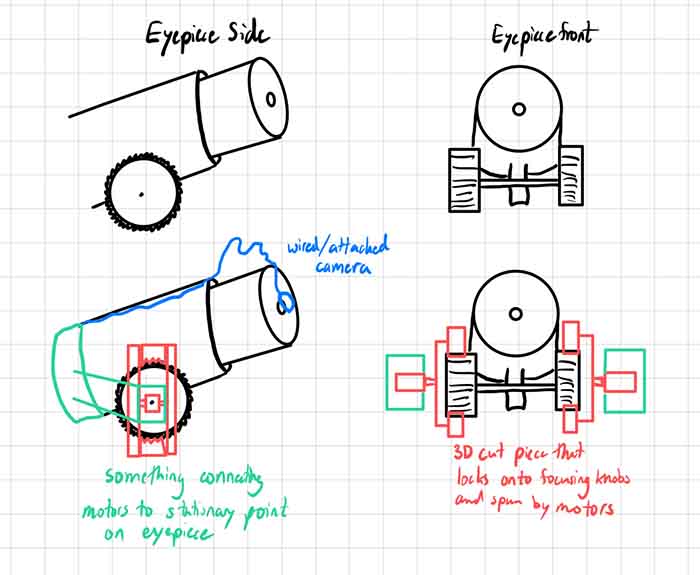 Eyepiece Side
Eyepiece front
wired/attached
camera
something connecting
motors to stationary point
on eyepiece
3D cut piece that
locks onto focusing knobs
and spun by motors